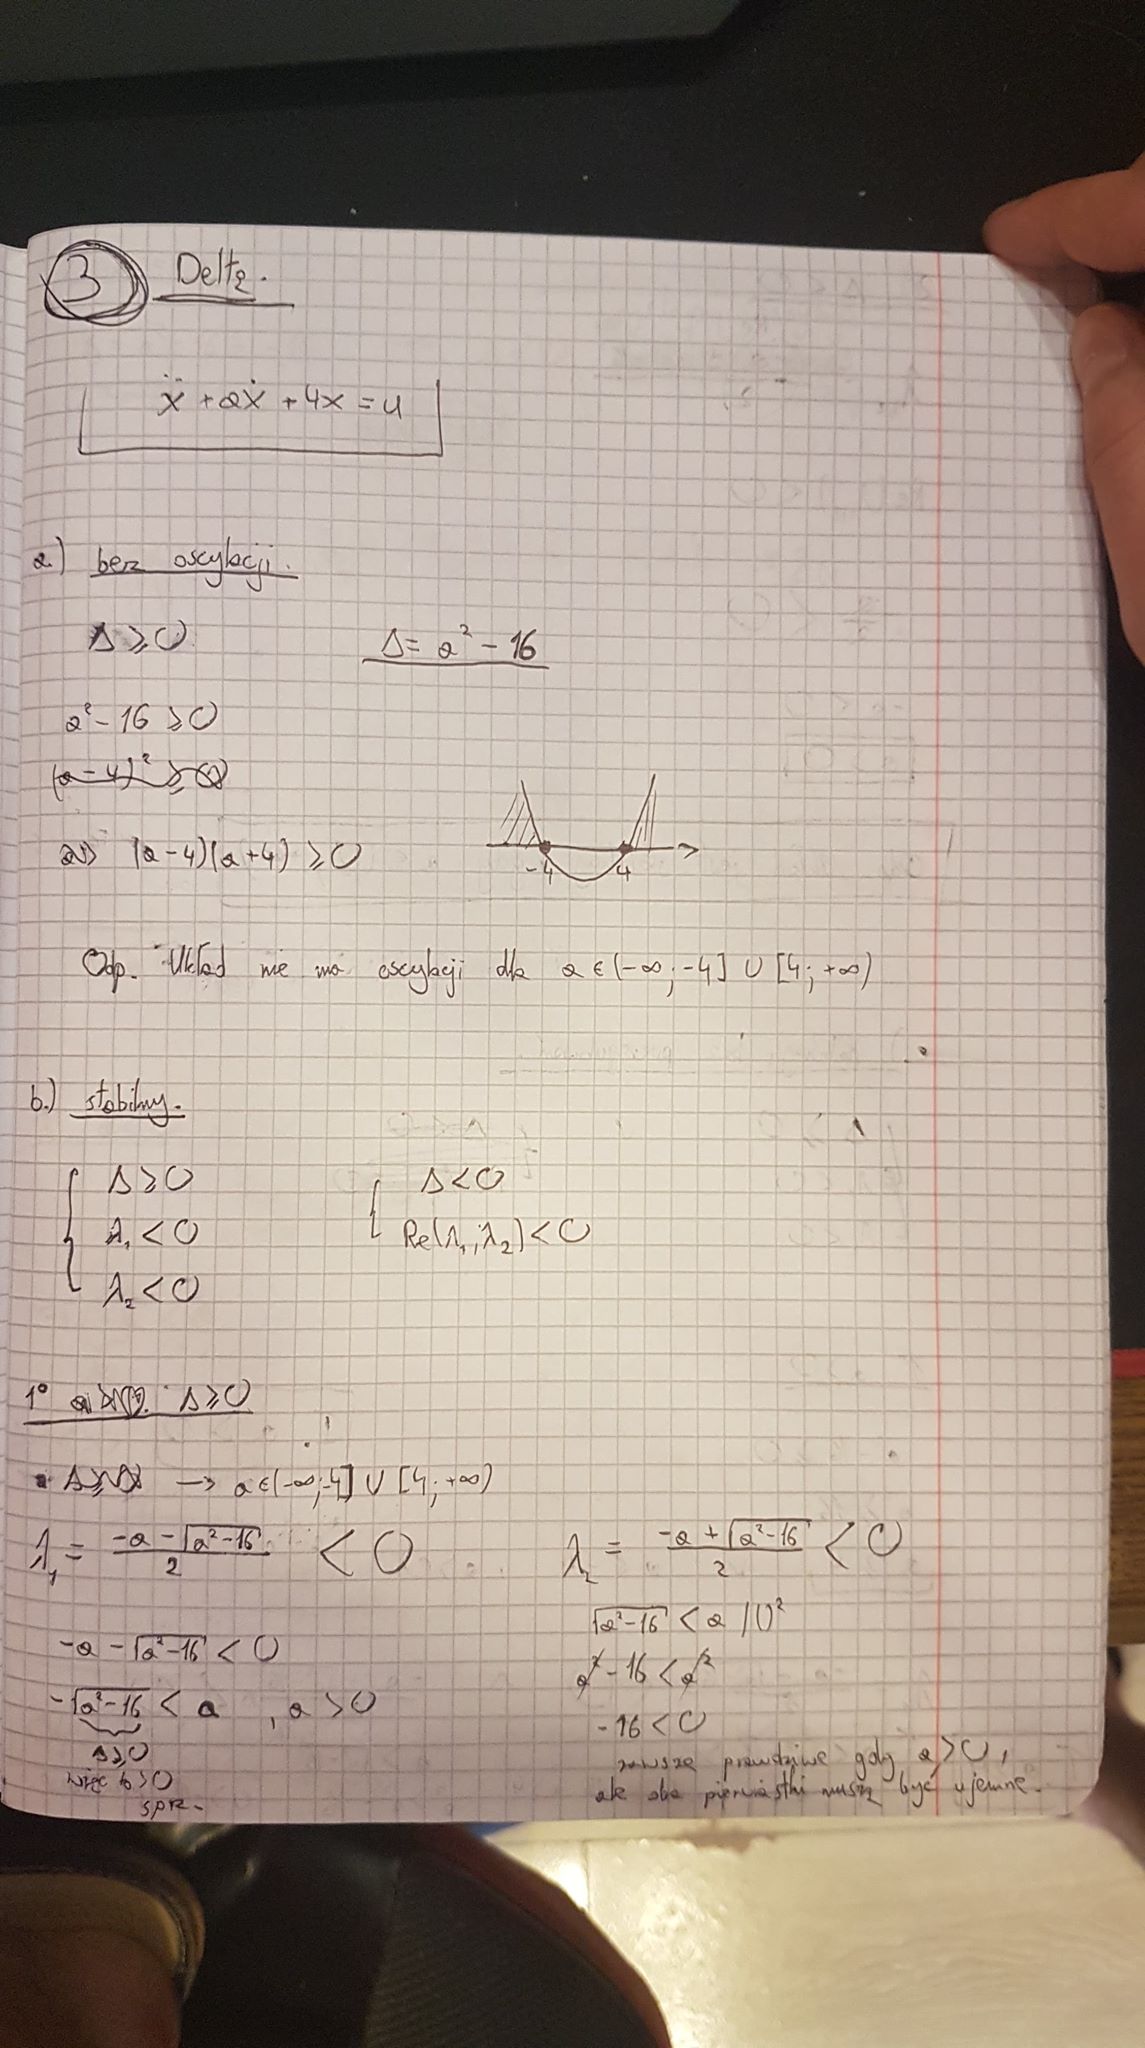 3 Deltą.
ẍ + aẋ + 4x = u
a.) bez oscylacji.
Δ ⩾ 0
Δ = a² - 16
a² - 16 ⩾ 0
(a - 4)² ⩾ 0
(a-4)(a+4) ⩾ 0
-4 4
Odp. Układ nie ma oscylacji dla a ∈ (-∞; -4] ∪ [4; +∞)
b.) stabilny.
Δ ⩾ 0
λ₁ < 0
λ₂ < 0
Δ < 0
Re(λ₁, λ₂) < 0
1° Δ ⩾ 0
→ a ∈ (-∞; -4] ∪ [4; +∞)
λ₁ = (-a - √(a²-16))/2 < 0
-a - √(a²-16) < 0
-√(a²-16) < a , a > 0
Δ ⩾ 0
więc to > 0
spr.
λ₂ = (-a + √(a²-16))/2 < 0
√(a²-16) < a /()²
a² - 16 < a²
-16 < 0
zawsze prawdziwe gdy a > 0,
ale oba pierwiastki muszą być ujemne.